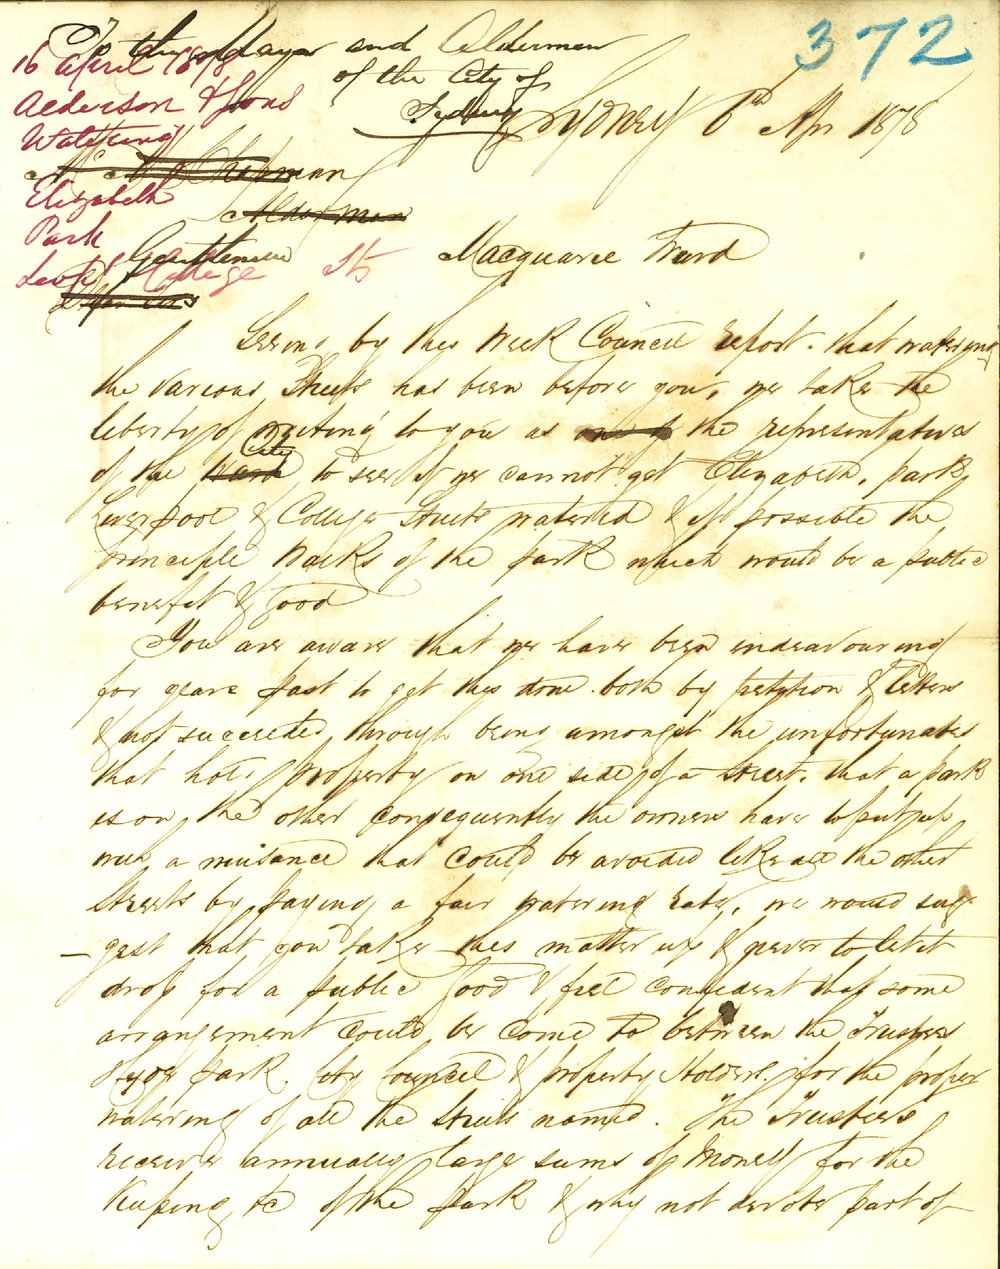 372
To the Mayor and Aldermen
of the City of
Sydney
16 April 1878
Alderson & Sons
Watering
Elizabeth
Park
College St
Sydney 6th Apr 1878
Chapman
Aldermen
Gentlemen
Macquarie Ward
Seeing by this Week Council report. that watering
the various Streets has been before you, we take the
liberty of writing to you as the representatives
of the City to see if we cannot get Elizabeth, park,
Liverpool & College Streets watered & if possible the
principle Walks of the park which would be a public
benefit & Good
You are aware that we have been endeavouring
for years past to get this done both by petition & letters
& not succeeded, through being amongst the unfortunates
that hold property on one side of a street. that a park
is on the other consequently the owners have to put up
with a nuisance that could be avoided like all the other
Streets by paying a fair watering rate, we would sug
-gest that you take this matter up & never to let it
drop for a public Good & feel confident that some
arrangement could be come to between the Trustees
Hyde park. City Council & property Holders. for the proper
watering of all the Streets named. The Trustees
receive annually large sums of Money for the
Keeping &c of the park & why not devote part of